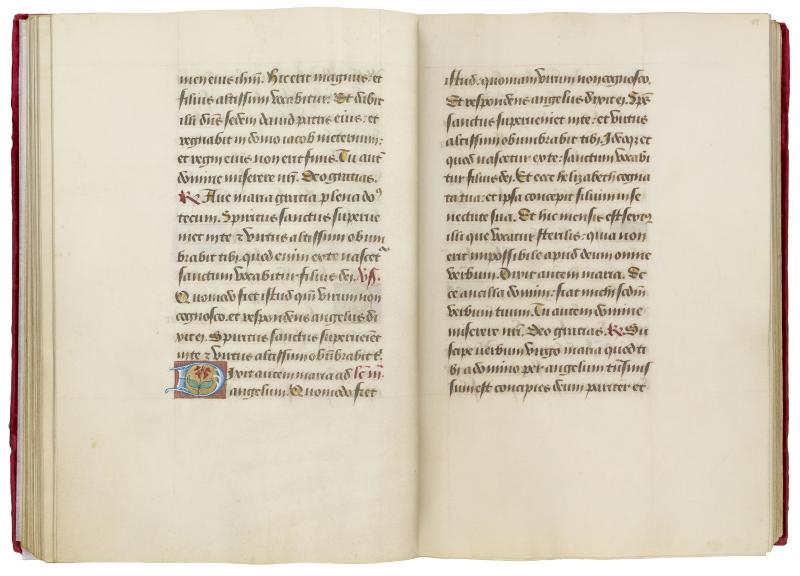 men eius ihm̄. Hic erit magnus: et
filius altissimi vocabitur. Et dabit
illi dn̄s sedem dauid patris eius: et
regnabit in domo iacob in eternum:
et regni eius non erit finis. Tu aut̄
domine miserere nr̄i. Deo gratias.
R Aue maria gratia plena dn̄s
tecum. Spiritus sanctus superue
niet in te ⁊ virtus altissimi obum
brabit tibi. quod enim ex te nascet᷑
sanctum vocabitur filius dei. Vs.
Quomodo fiet istud qm̄ virum non
cognosco. et respondens angelus di
xit ei. Spiritus sanctus superueniet
in te ⁊ virtus altissimi obūbrabit t̄.
Dixit autem maria ad lc̄. iii.
angelum. Quomodo fiet
istud: quoniam virum non cognosco.
Et respondens angelus dixit ei. Sp̄s
sanctus superueniet in te: et virtus
altissimi obumbrabit tibi. Ideoq; et
quod nascetur ex te: sanctum vocabi
tur filius dei. Et ecce helizabeth cogna
ta tua: et ipsa concepit filium in se
nectute sua. Et hic mensis est sextus
illi que vocatur sterilis: quia non
erit impossibile apud deum omne
verbum. Dixit autem maria. Ec
ce ancilla domini: fiat michi scd̄m
verbum tuum. Tu autem domine
miserere nr̄i. Deo gratias. R Su
scipe uerbum virgo maria quod ti
bi a domino per angelum tn̄smis
sum est concipies deum pariter et